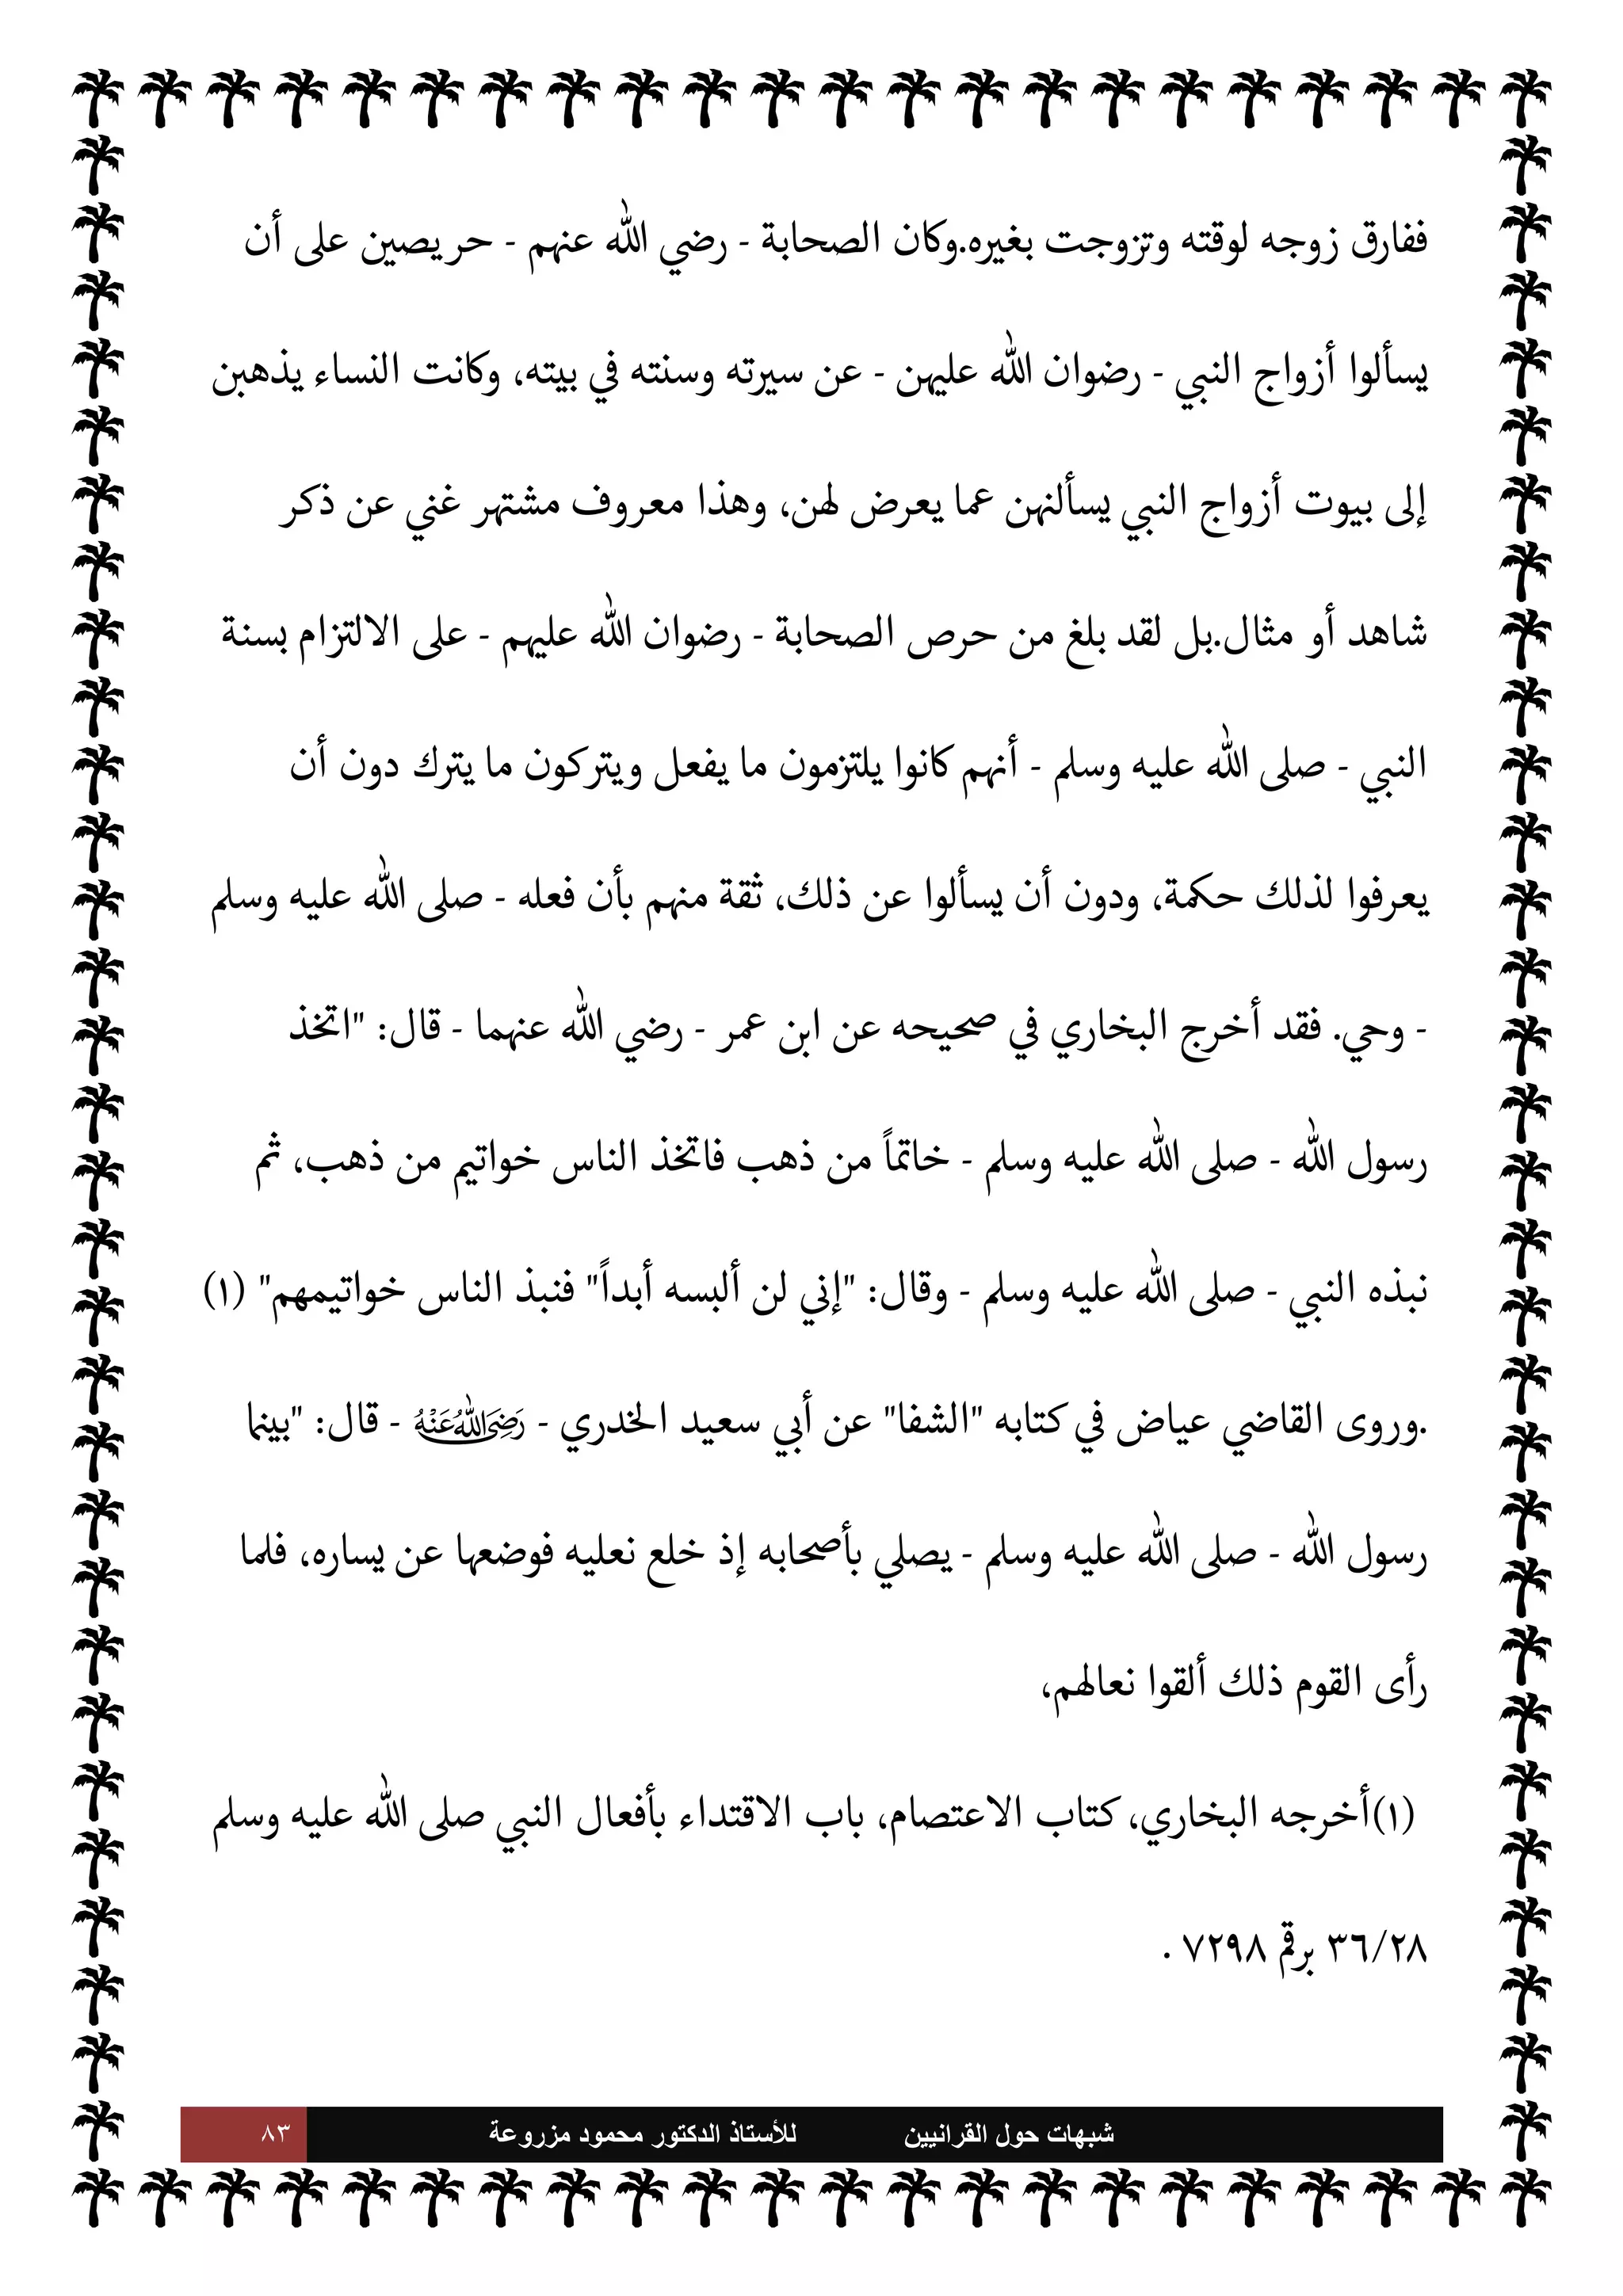 ففارق زوجه لوقته وتزوجت بغيره.وكان الصحابة - رضي الله عنهم - حريصين على أن
يسألوا أزواج النبي - رضوان الله عليهن - عن سيرته وسنته في بيته، وكانت النساء يذهبن
إلى بيوت أزواج النبي يسألنهن عما يعرض لهن، وهذا معروف مشتهر غني عن ذكر
شاهد أو مثال.بل لقد بلغ من حرص الصحابة - رضوان الله عليهم - على الالتزام بسنة
النبي - صلى الله عليه وسلم - أنهم كانوا يلتزمون ما يفعل ويتركون ما يترك دون أن
يعرفوا لذلك حكمة، ودون أن يسألوا عن ذلك، ثقة منهم بأن فعله - صلى الله عليه وسلم
- وحي. فقد أخرج البخاري في صحيحه عن ابن عمر - رضي الله عنهما - قال: "اتخذ
رسول الله - صلى الله عليه وسلم - خاتماً من ذهب فاتخذ الناس خواتيم من ذهب، ثم
نبذه النبي - صلى الله عليه وسلم - وقال: "إني لن ألبسه أبداً" فنبذ الناس خواتيمهم" (١)
.وروى القاضي عياض في كتابه "الشفا" عن أبي سعيد الخدري - رَضِيَ اللهُ عَنْهُ - قال: "بينما
رسول الله - صلى الله عليه وسلم - يصلي بأصحابه إذ خلع نعليه فوضعها عن يساره، فلما
رأى القوم ذلك ألقوا نعالهم،
(١)أخرجه البخاري، كتاب الاعتصام، باب الاقتداء بأفعال النبي صلى الله عليه وسلم
٣٦/٢٨ برقم ٧٢٩٨ .
شبهات حول القرانيين للأستاذ الدكتور محمود مزروعة ٨٣